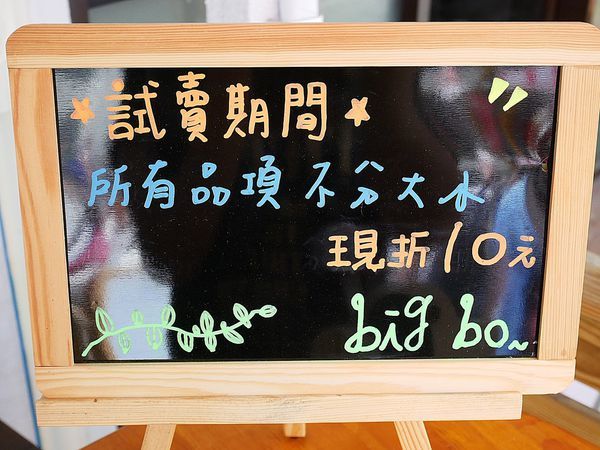 試賣期間
所有品項 不分大小
現折10元
big bo~